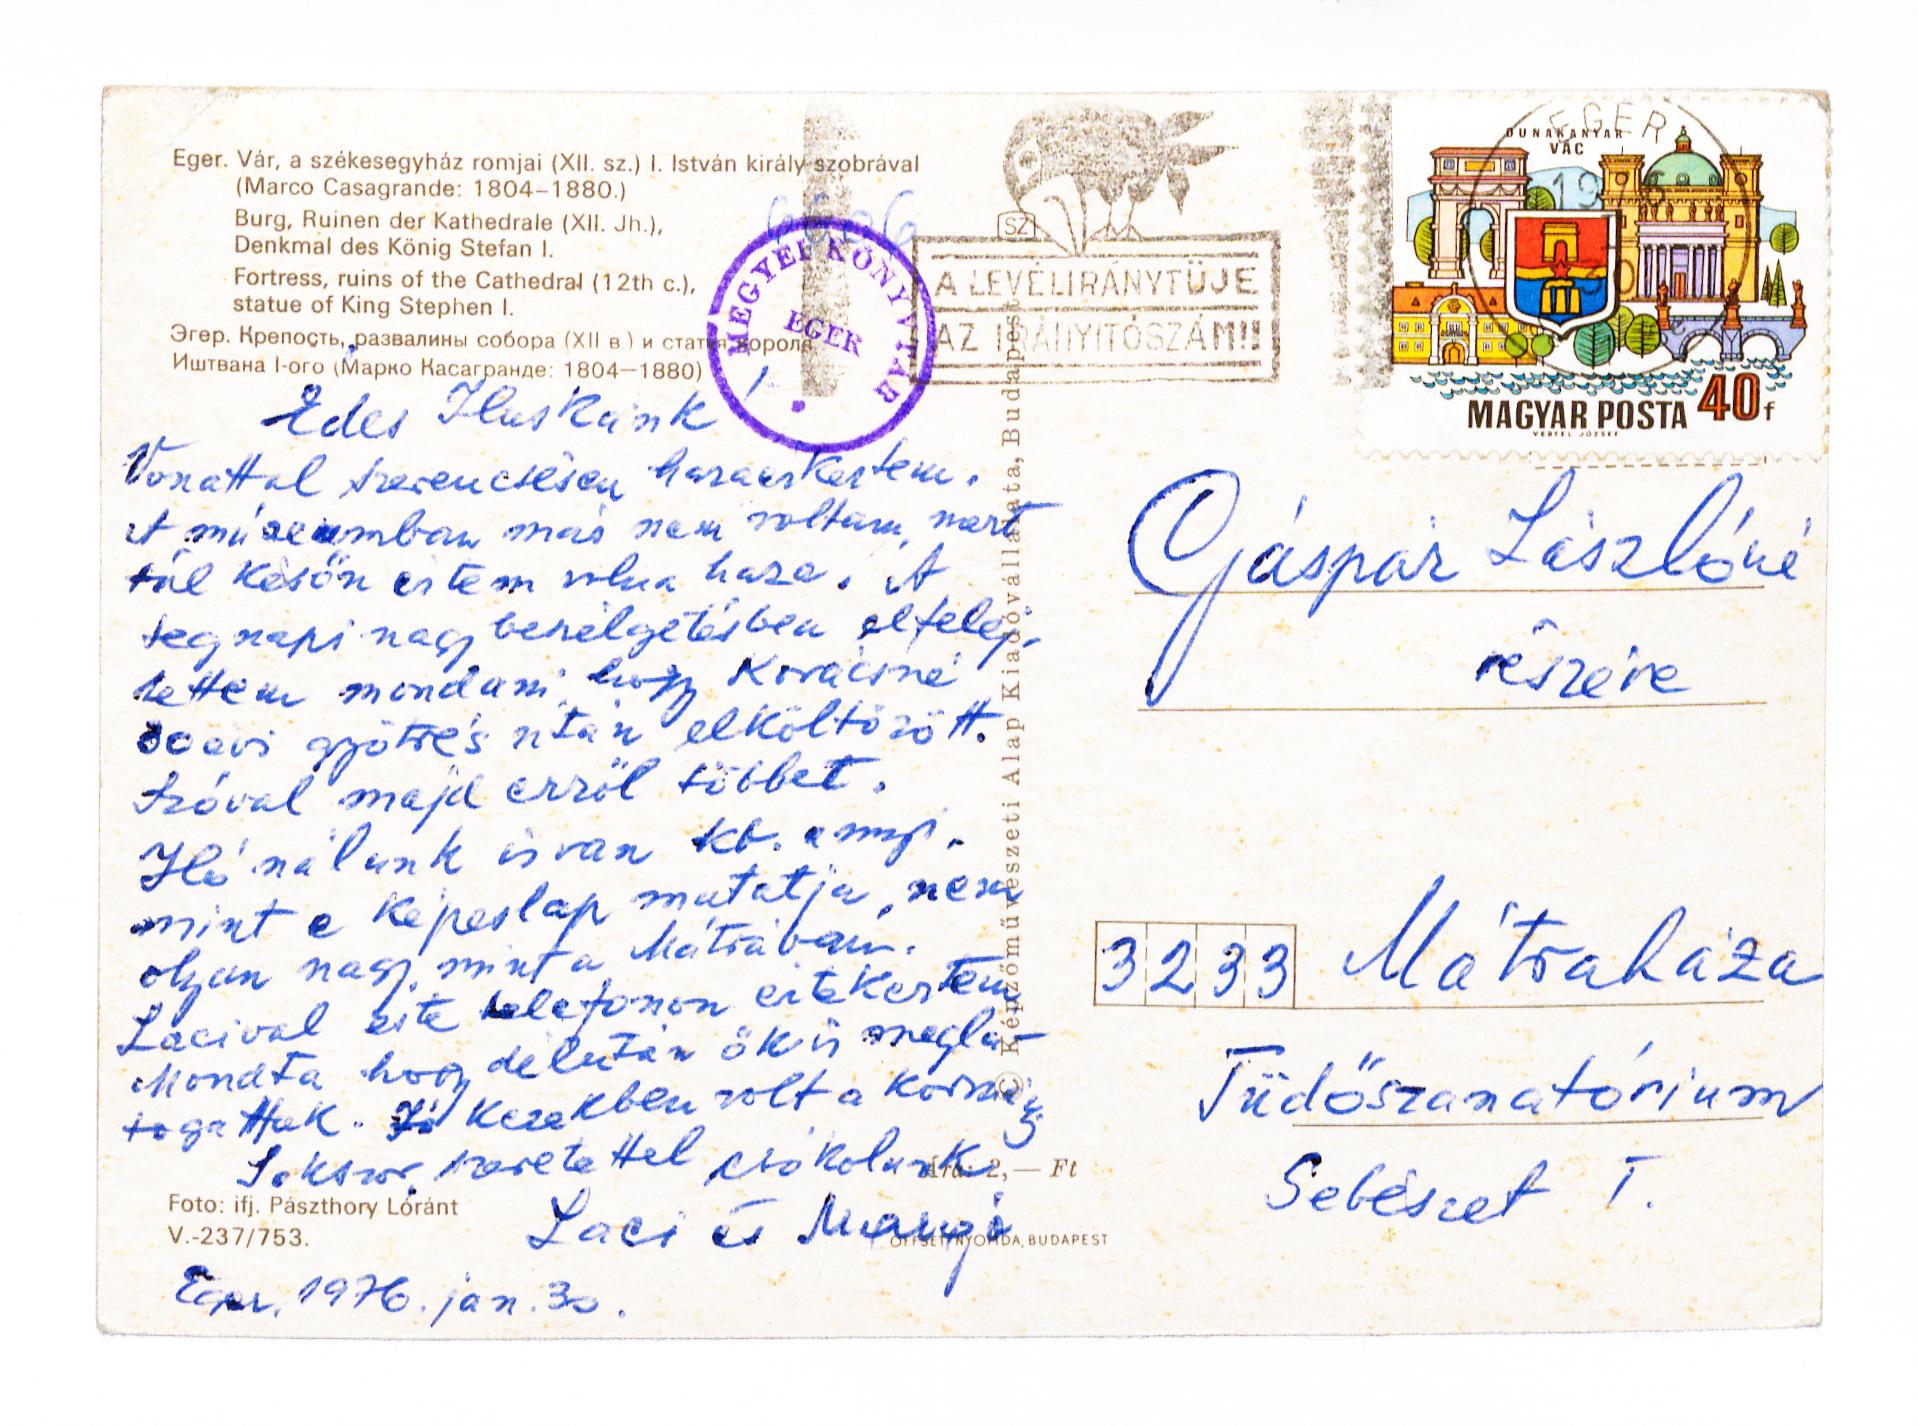 Eger. Vár, a székesegyház romjai (XII. sz.) I. István király szobrával
(Marco Casagrande: 1804–1880.)
Burg, Ruinen der Kathedrale (XII. Jh.),
Denkmal des König Stefan I.
Fortress, ruins of the Cathedral (12th c.),
statue of King Stephen I.
Эгер. Крепость, развалины собора (XII в.) и статуя короля
Иштвана I-ого (Марко Касагранде: 1804–1880)
6606
MEGYEI KÖNYVTÁR
EGER
SZ
A LEVÉLIRÁNYTŰJE
AZ IRÁNYITÓSZÁM!!
EGER
DUNAKANYAR
VÁC
MAGYAR POSTA 40f
VERTEL JÓZSEF
Édes Iluskánk!
Vonattal szerencsésen hazaérkeztem.
A múzeumban más nem voltam, mert
túl későn értem volna haza. A
tegnapi nagy beszélgetésben elfelej-
tettem mondani, hogy Kovácsné
30 évi gyötrés után elköltözött.
Szóval majd erről többet.
Hó nálunk is van kb. annyi,
mint a képeslap mutatja, nem
olyan nagy, mint a Mátrában.
Lacival este telefonon értekeztem
Mondta hogy délután ők is megláto-
togattak. Jó kezekben volt a kormány
Sokszor, szeretettel csókolunk
Laci és Manyi
Eger, 1976. jan. 30.
Foto: ifj. Pászthory Lóránt
V.-237/753.
© Képzőművészeti Alap Kiadóvállalata, Budapest
Ára: 2,— Ft
OFFSET NYOMDA, BUDAPEST
Gáspár Lászlóné
részére
3233 Mátraháza
Tüdőszanatórium
Sebészet I.